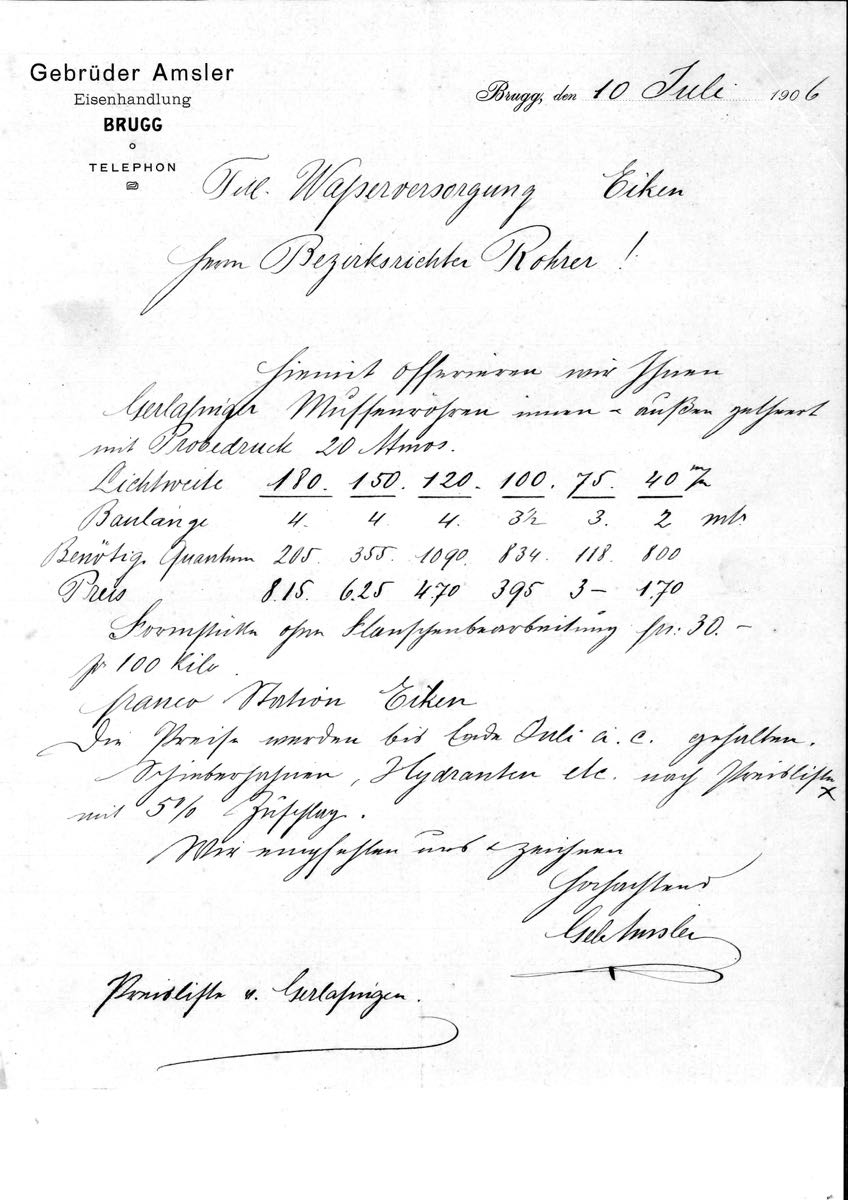 Gebrüder Amsler
Eisenhandlung
BRUGG
TELEPHON
Brugg, den 10 Juli 1906
Titl. Waßerversorgung Eiken
Herrn Bezirksrichter Rohrer !
Hiemit offerieren wir Ihnen
Gerlafinger Muffenröhren innen & außen getheert
mit Probedruck 20 Atmos.
Lichtweite 180. 150. 120. 100. 75. 40 m/m
Baulänge 4. 4 4. 3½ 3. 2 mtr
Benötig. Quantum 205. 355. 1090. 834. 118. 800
Preis 8.15. 6.25 470 395 3– 1.70
Formstücke ohne Flanschenbearbeitung fr: 30.–
pr 100 Kilo
franco Station Eiken
Die Preise werden bis Ende Juli a. c. gehalten.
Schieberhahnen, Hydranten etc. nach Preisliste x
mit 5% Zuschlag.
Wir empfehlen uns & zeichnen
Hochachtend
Gebr Amsler
Preisliste v. Gerlafingen.